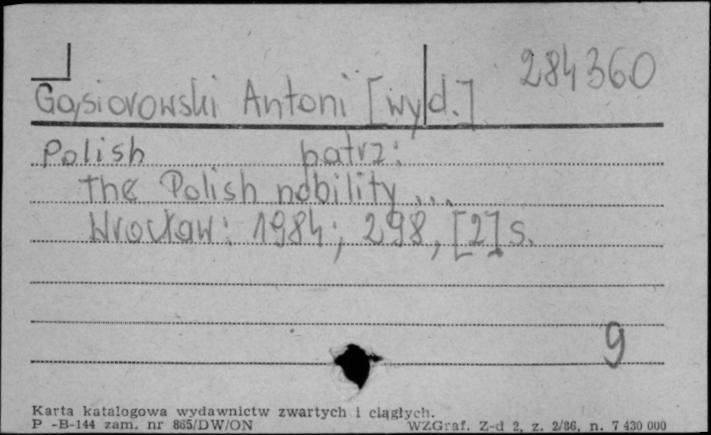 284360
Gąsiorowski Antoni [wyd.]
Polish patrz:
the Polish nobility ...
Wrocław: 1984; 298, [2] s.
9
Karta katalogowa wydawnictw zwartych i ciągłych.
P -B-144 zam. nr 865/DW/ON WZGraf. Z-d 2, z. 2/86, n. 7 430 000